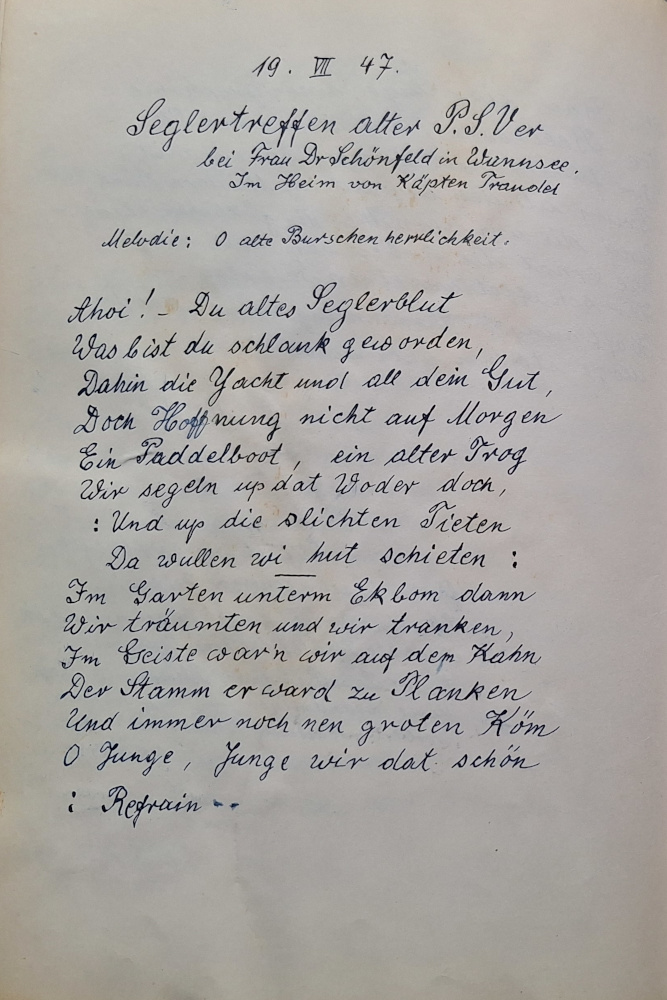 19. VII 47.
Seglertreffen alter P.S.Ver
bei Frau Dr Schönfeld in Wannsee.
Im Heim von Käpten Traudel
Melodie: O alte Burschenherrlichkeit.
Ahoi! - Du altes Seglerblut
Was bist du schlank geworden,
Dahin die Yacht und all dein Gut,
Doch Hoffnung nicht auf Morgen
Ein Paddelboot, ein alter Trog
Wir segeln up dat Woder doch,
: Und up die slichten Tieten
Da wullen wi hut schieten :
Im Garten unterm Ekbom dann
Wir träumten und wir tranken,
Im Geiste war'n wir auf dem Kahn
Der Stamm er ward zu Planken
Und immer noch nen groten Köm
O Junge, Junge wir dat schön
: Refrain --